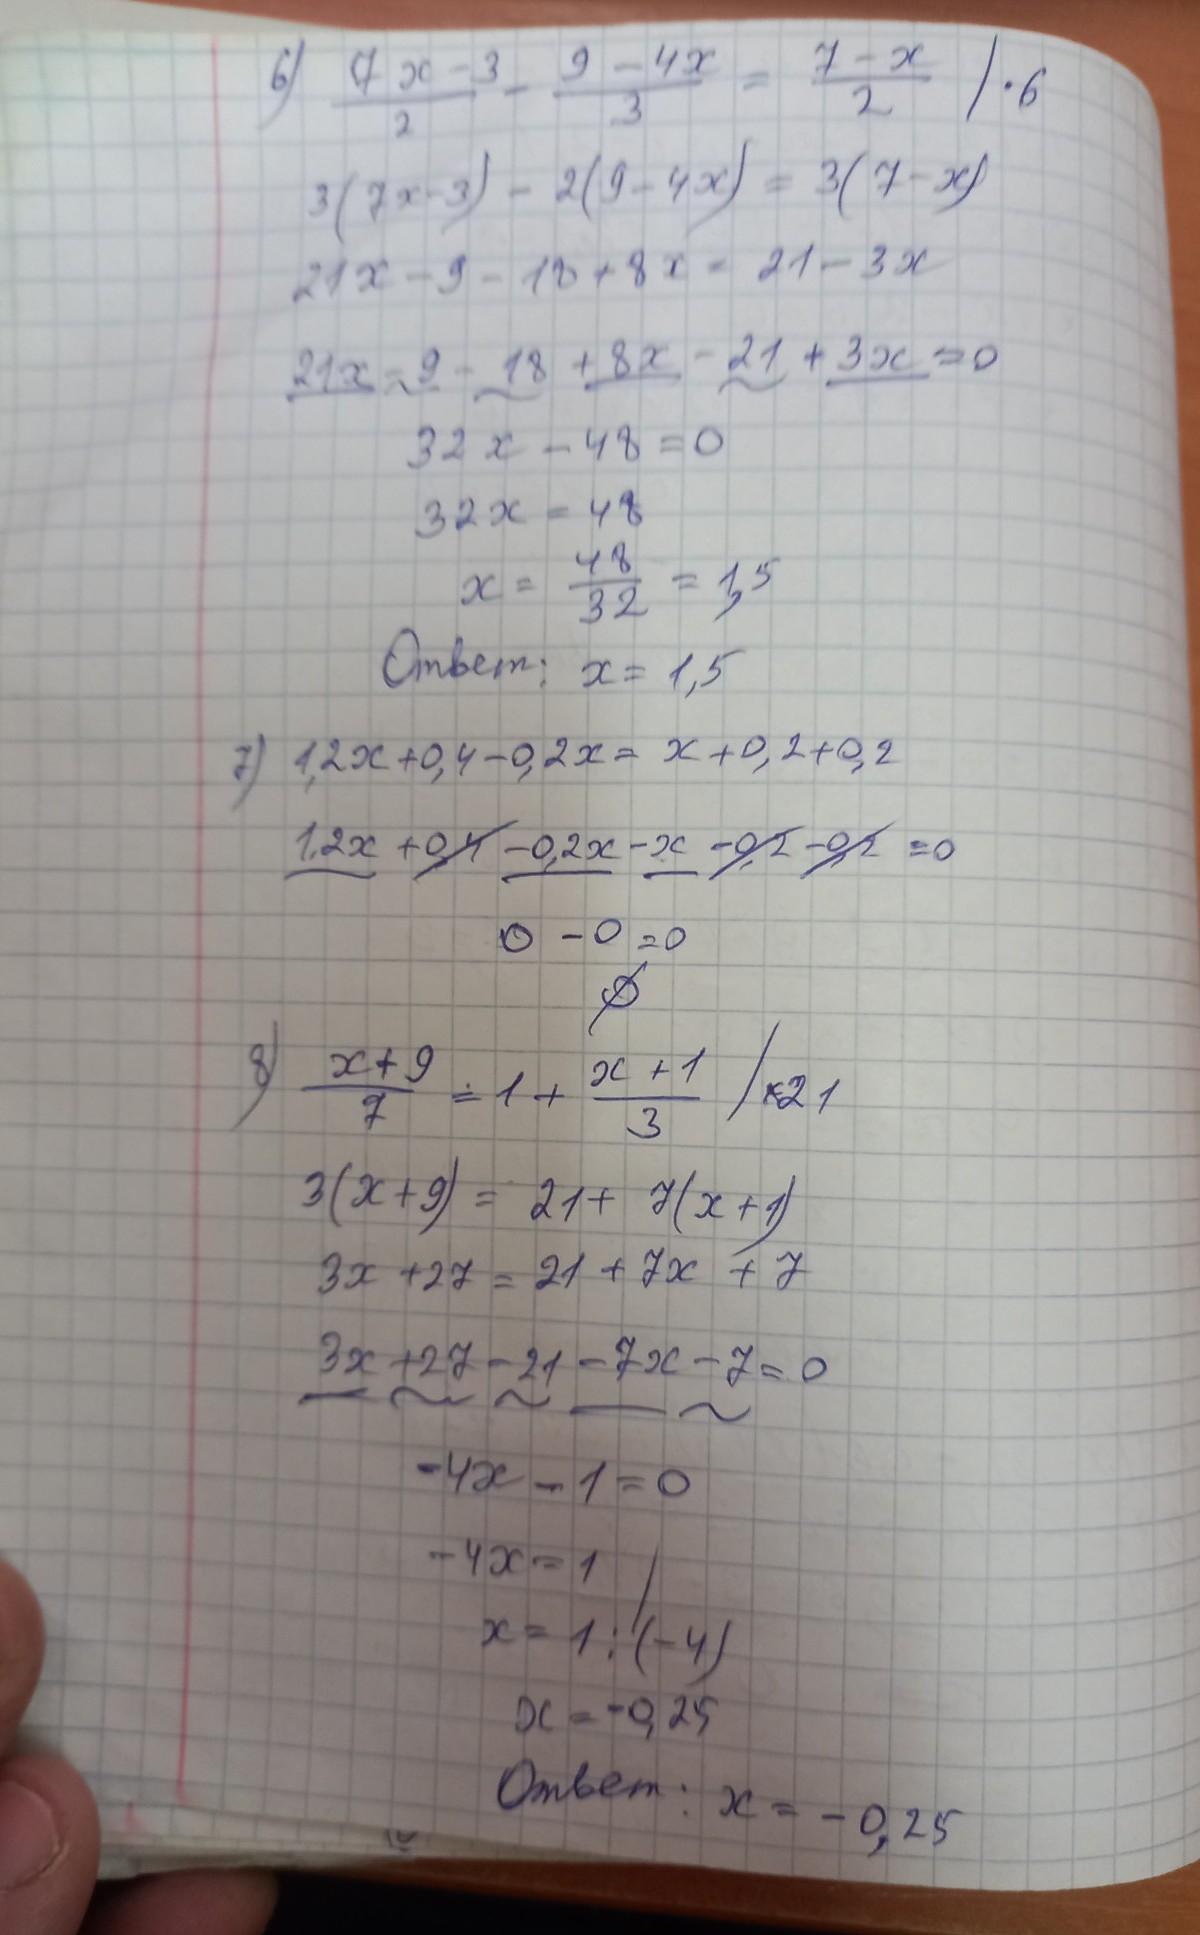 6) (7x-3)/2 - (9-4x)/3 = (7-x)/2 / ·6
3(7x-3) - 2(9-4x) = 3(7-x)
21x - 9 - 18 + 8x = 21 - 3x
21x - 9 - 18 + 8x - 21 + 3x = 0
32x - 48 = 0
32x = 48
x = 48/32 = 1,5
Ответ: x = 1,5
7) 1,2x + 0,4 - 0,2x = x + 0,2 + 0,2
1,2x + 0,4 - 0,2x - x - 0,2 - 0,2 = 0
0 - 0 = 0
∅
8) (x+9)/7 = 1 + (x+1)/3 / ·21
3(x+9) = 21 + 7(x+1)
3x + 27 = 21 + 7x + 7
3x + 27 - 21 - 7x - 7 = 0
-4x - 1 = 0
-4x = 1
x = 1 : (-4)
x = -0,25
Ответ: x = -0,25